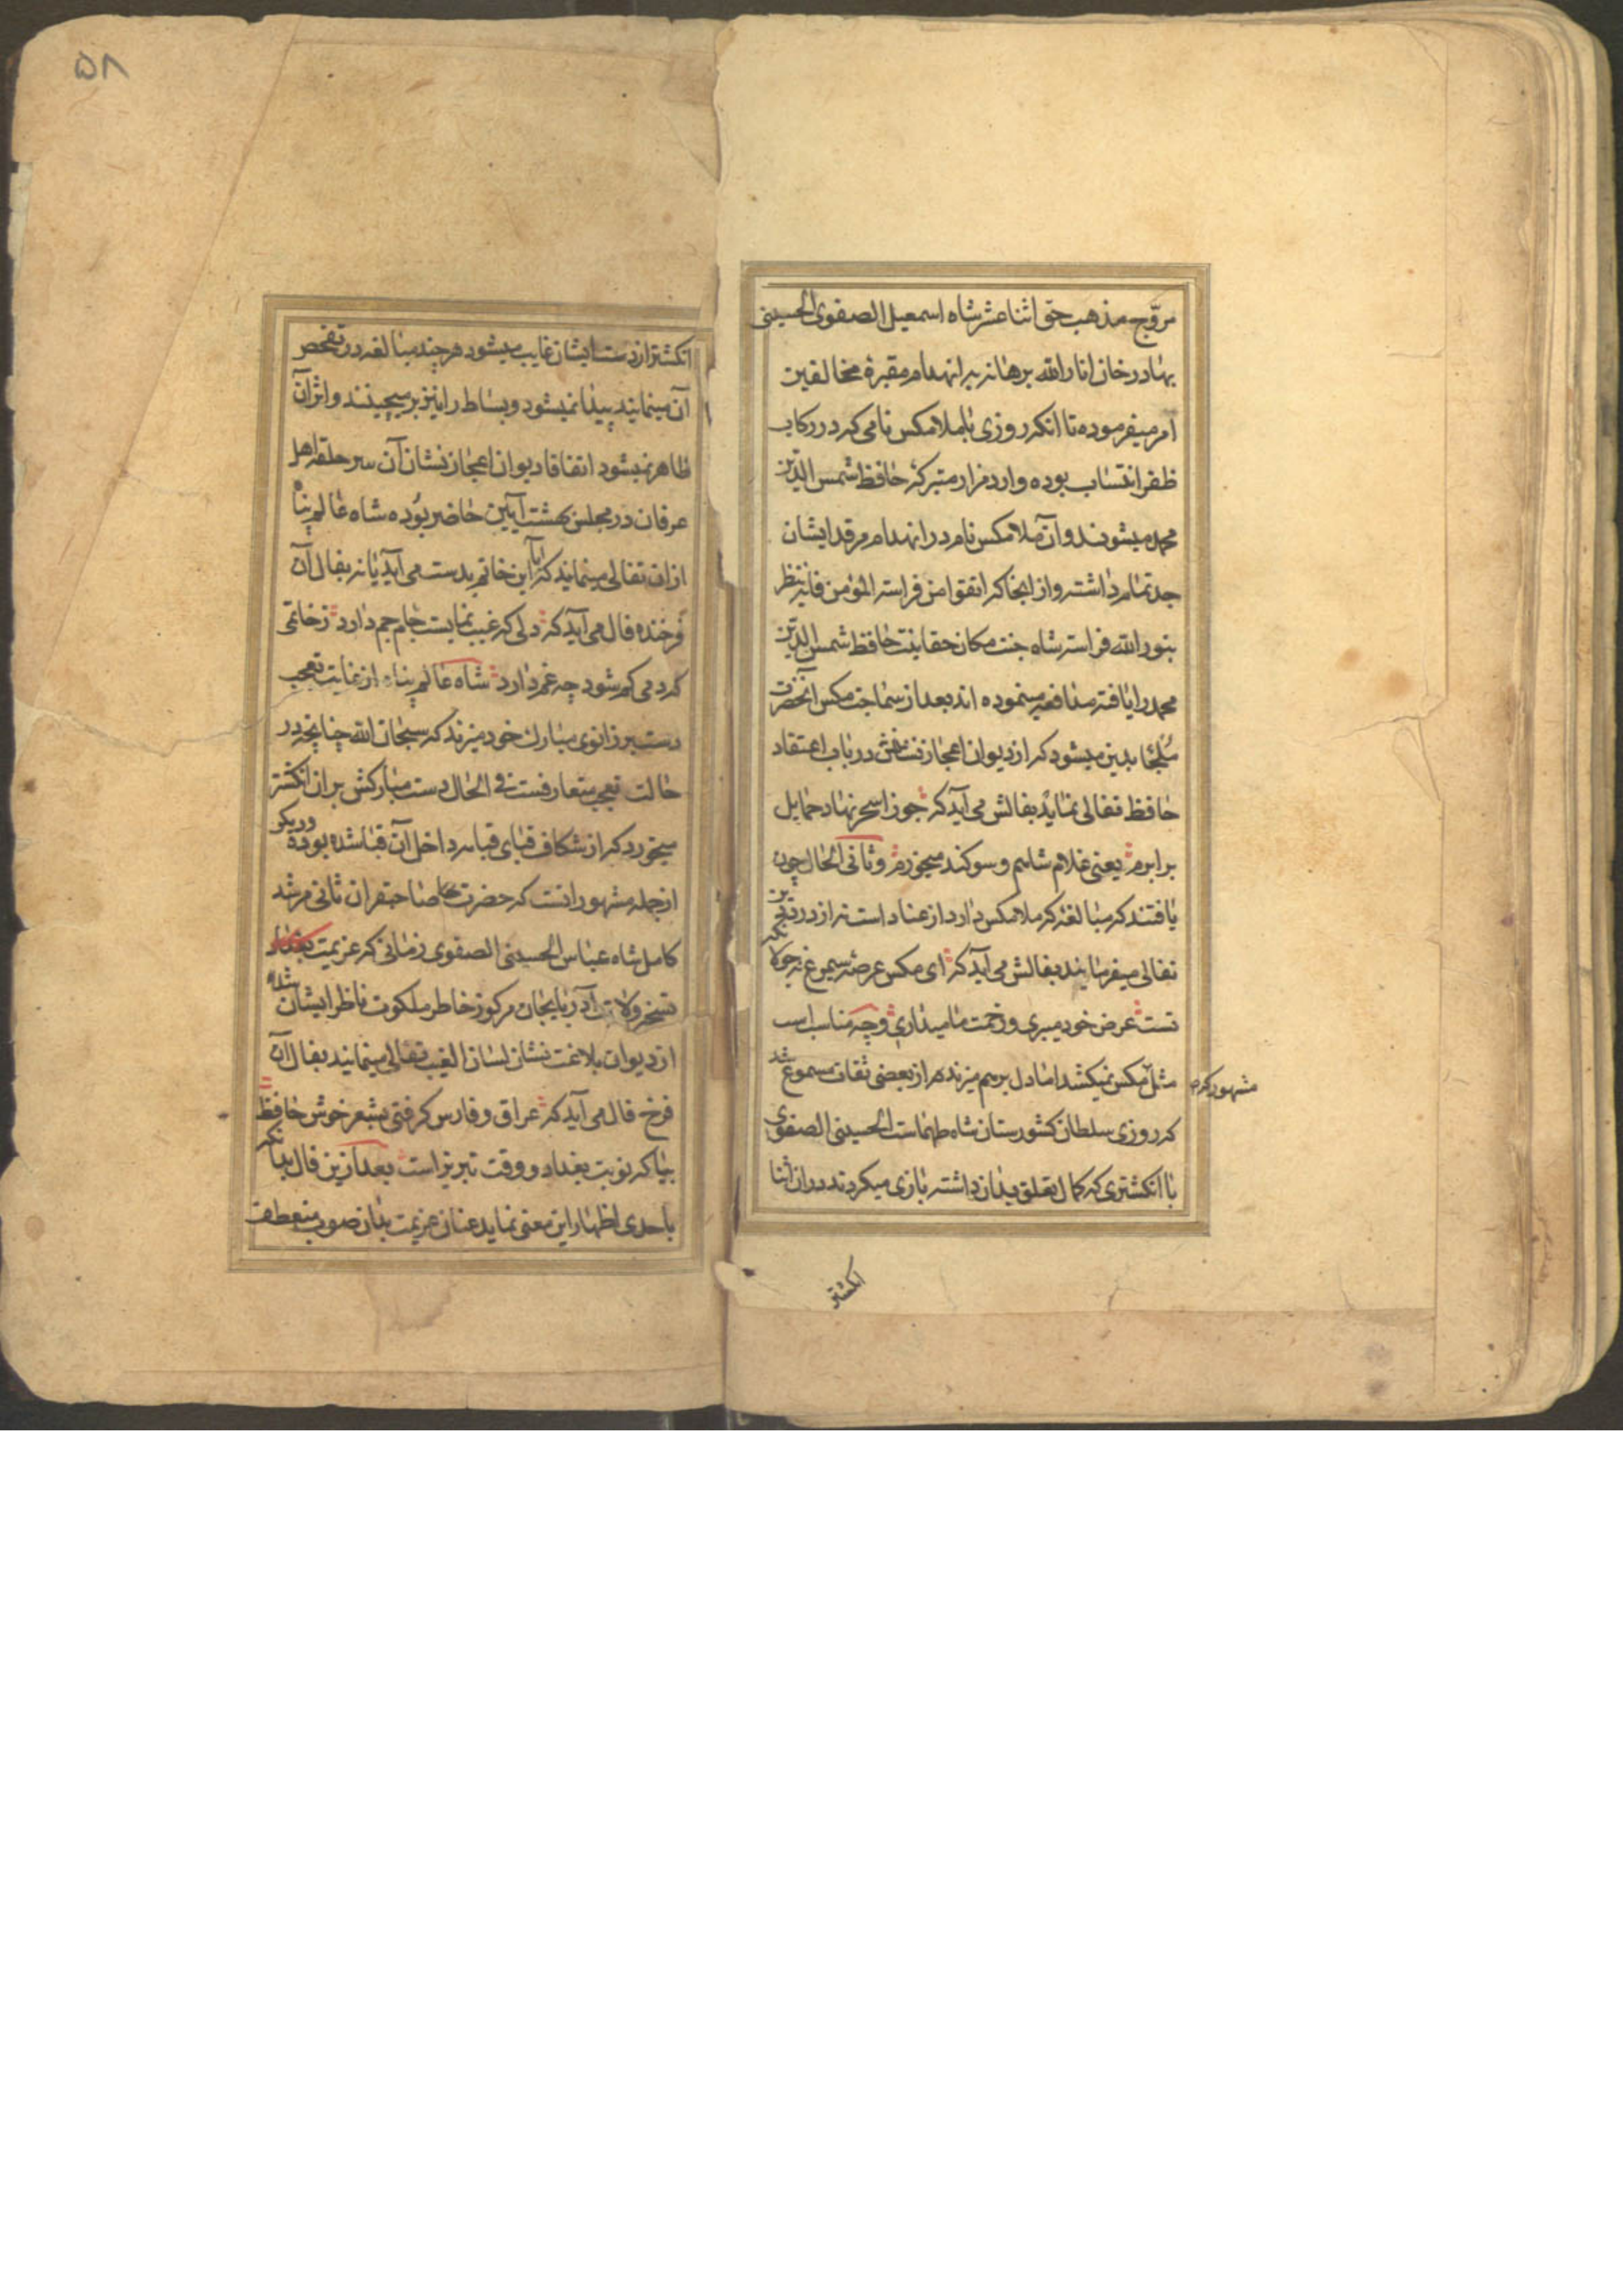 مروّج مذهب حق اثنا عشر شاه اسمعیل الصفوی الحسینی
بهادر خان انار الله برهانه بر انهدام مقبرهٔ مخالفین
امر میفرموده تا انکه روزی با ملا مکس نامی که در رکاب
ظفر انتساب بوده وارد مزار متبرکهٔ حافظ شمس الدّین
محمد میشوند و آن ملا مکس نام در انهدام مرقد ایشان
جد تمام داشته و از انجا که اتقوا من فراسته المؤمن فانه ینظر
بنور الله فراسته شاه جنت مکان حقانیت حافظ شمس الدّین
محمد را یافته مدافعه مینموده اند بعد از سماجت مکس انحضرت
ملجا بدین میشود که از دیوان اعجاز نشانش در باب اعتقاد
حافظ تفالی نماید بفالش می آید که جوزا سحر نهاد حمایل
برابرم یعنی غلام شاهم و سوکند میخورم و ثانی الحال چون
یافتند که مبالغهٔ که ملا مکس دارد از عناد است نه از درد دین
تفالی میفرمایند بفالش می آید که ای مکس عرصهٔ سیمرغ نه جولانکه
تست عرض خود میبری و زحمت ما میداری و چه مناسب است
مثل مکس نمیکشد اما دل برهم میزند هر از بعضی ثقات مسموع شد
مشهور که
که روزی سلطان کشورستان شاه طهماست الحسینی الصفوی
با انکشتری که کمال تعلق بدان داشته بازی میکردند در ان اثنا
انکشتر
۵۸
انکشتر از دست ایشان غایب میشود هر چند مبالغه در تفحص
آن مینمایند پیدا نمیشود و بساط را نیز بر میچینند و اثر آن
ظاهر نمیشود اتفاقا دیوان اعجاز نشان آن سر حلقه اهل
عرفان در مجلس بهشت آیین حاضر بوده شاه عالم پناه
ازان تفالی مینماید که آیا این خاتم بدست می آید یا نه بفال آن
فرخنده فال می آید که دلی که غیب نمایست جام جم دارد ز خاتمی
که دمی کم شود چه غم دارد شاه عالم پناه از غایت تعجب
دست بر زانوی مبارک خود میزند که سبحان الله چنانچه در
حالت تعجب متعارفست فی الحال دست مبارکش بر ان انکشتر
میخورد که از شکاف قبای قبا سرداخل آن قبا شده بوده و دیکر
از جمله مشهور انست که حضرت صاحبقران ثانی مرشد
کامل شاه عباس الحسینی الصفوی زمانی که عزیمت بغداد
تسخیر ولایت آذربایجان مرکوز خاطر ملکوت ناظر ایشان شده
از دیوان بلاغت نشان لسان الغیب تفالی مینمایند بفال آن
فرخ فال می آید که عراق و فارس کرفتی بشعر خوش حافظ
بیا که نوبت بغداد و وقت تبریز است بعد ازین فال بدانکه
باحدی اظهار این معنی نماید عنان عزیمت بدان صوب منعطف